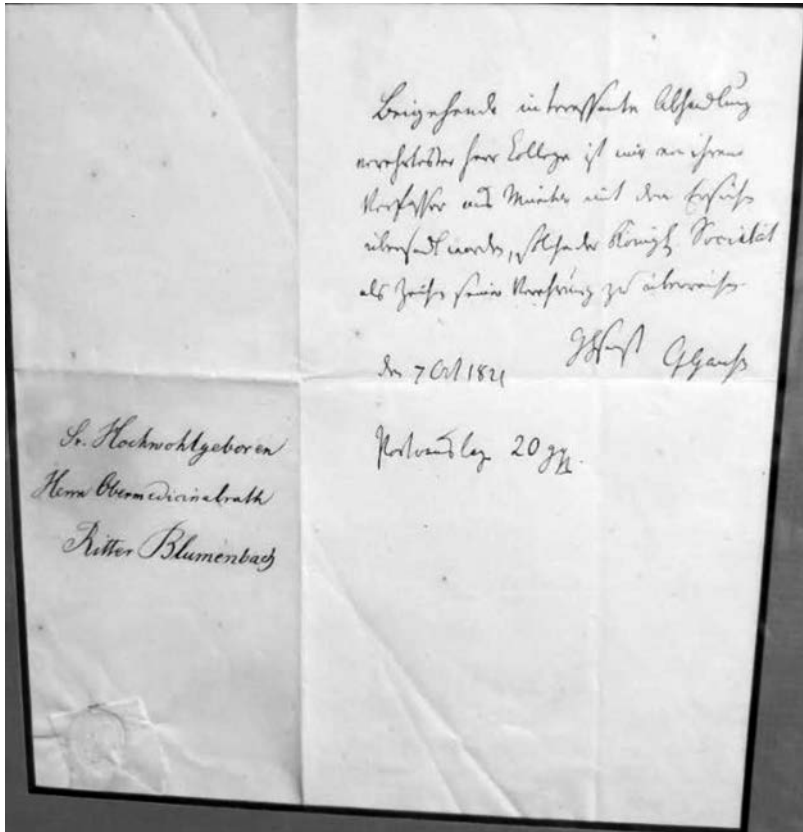 Beigehende interessante Abhandlung
verehrtester Herr College ist mir von ihrem
Verfasser aus mit dem Ersuchen
übersandt worden, solche der Königl. Societät
als Zeichen seiner Verehrung zu überreichen
CGauß
den 7 Oct 1821
Sr. Hochwohlgeboren
Herrn Obermedicinalrath
Ritter Blumenbach
Portoauslage 20 ggr.